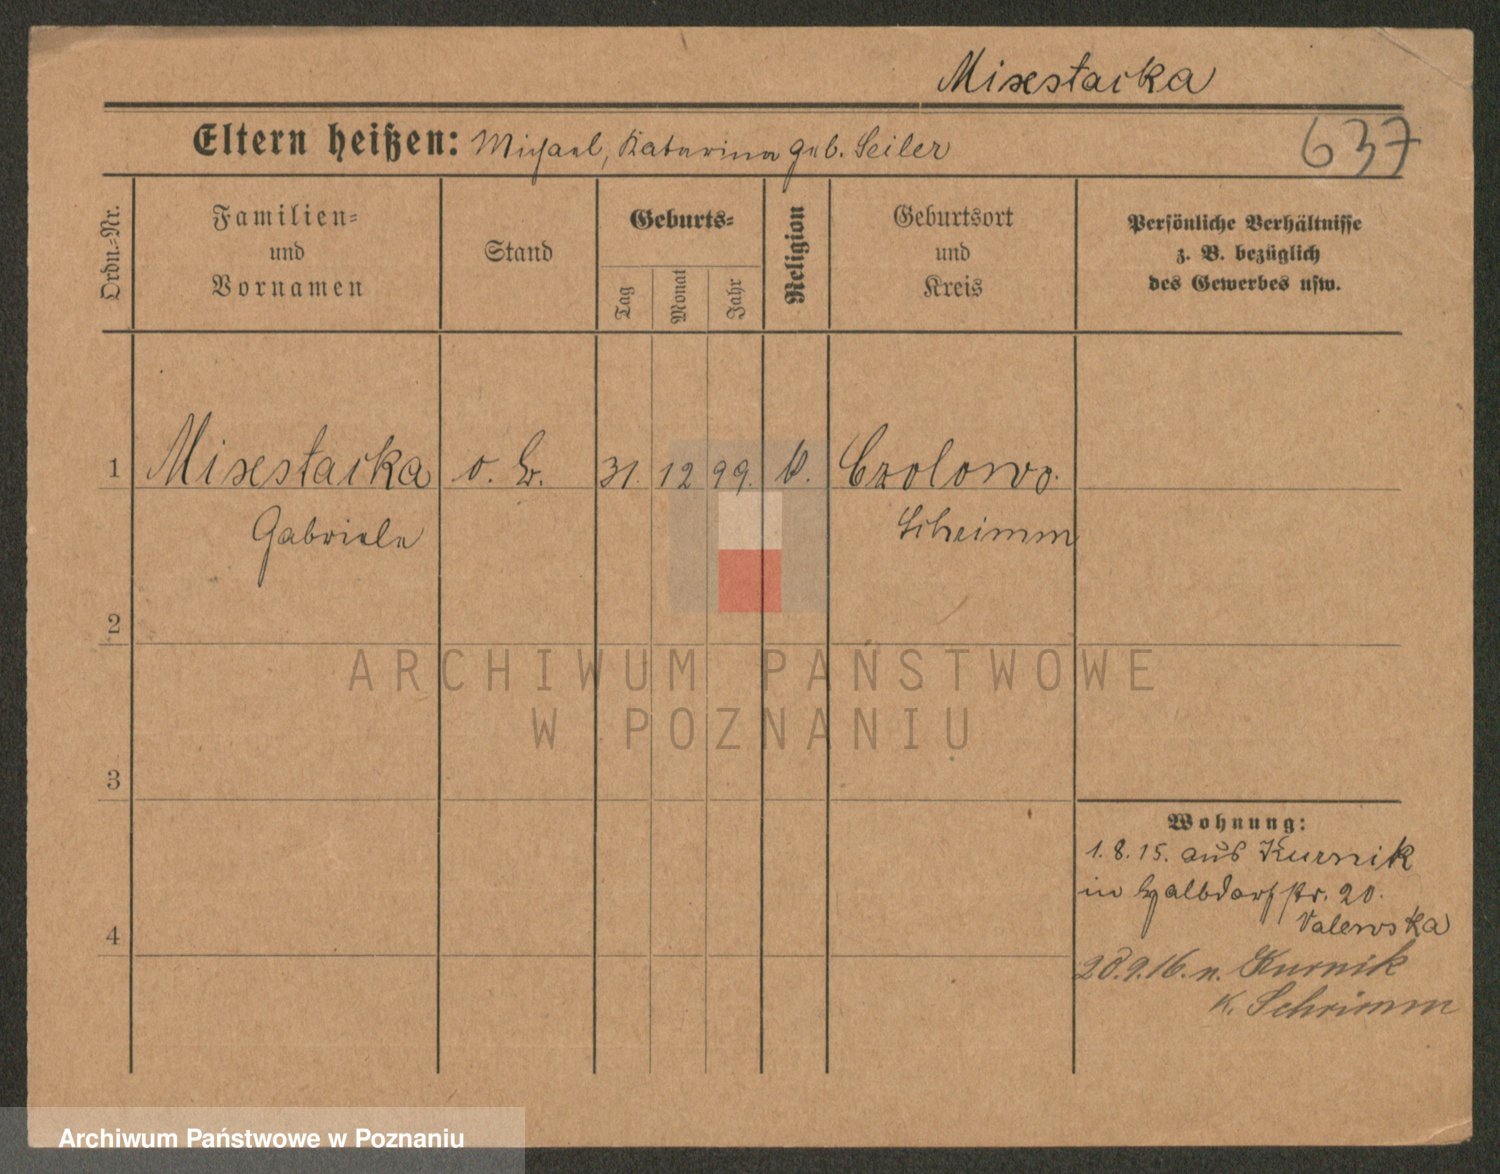 Misestacka
Eltern heißen: Michael, Katarina geb. Seiler
637
Ordn.-Nr.
Familien-
und
Vornamen
Stand
Geburts-
Tag
Monat
Jahr
Religion
Geburtsort
und
Kreis
Persönliche Verhältnisse
z. B. bezüglich
des Gewerbes usw.
1 Misestacka o. G. 31. 12 99. k. Czolowo.
Gabriele Schrimm
2
ARCHIWUM PAŃSTWOWE
W POZNANIU
3
Wohnung:
1.8.15. aus Kurnik
in Halbdorfstr. 20.
Valewska
4
28.9.16. n. Kurnik
K. Schrimm
Archiwum Państwowe w Poznaniu